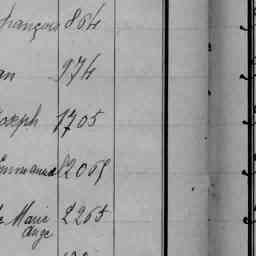 françois 864
an 974
Joseph 1705
Emmanuel 2069
Marie 2265
Ange